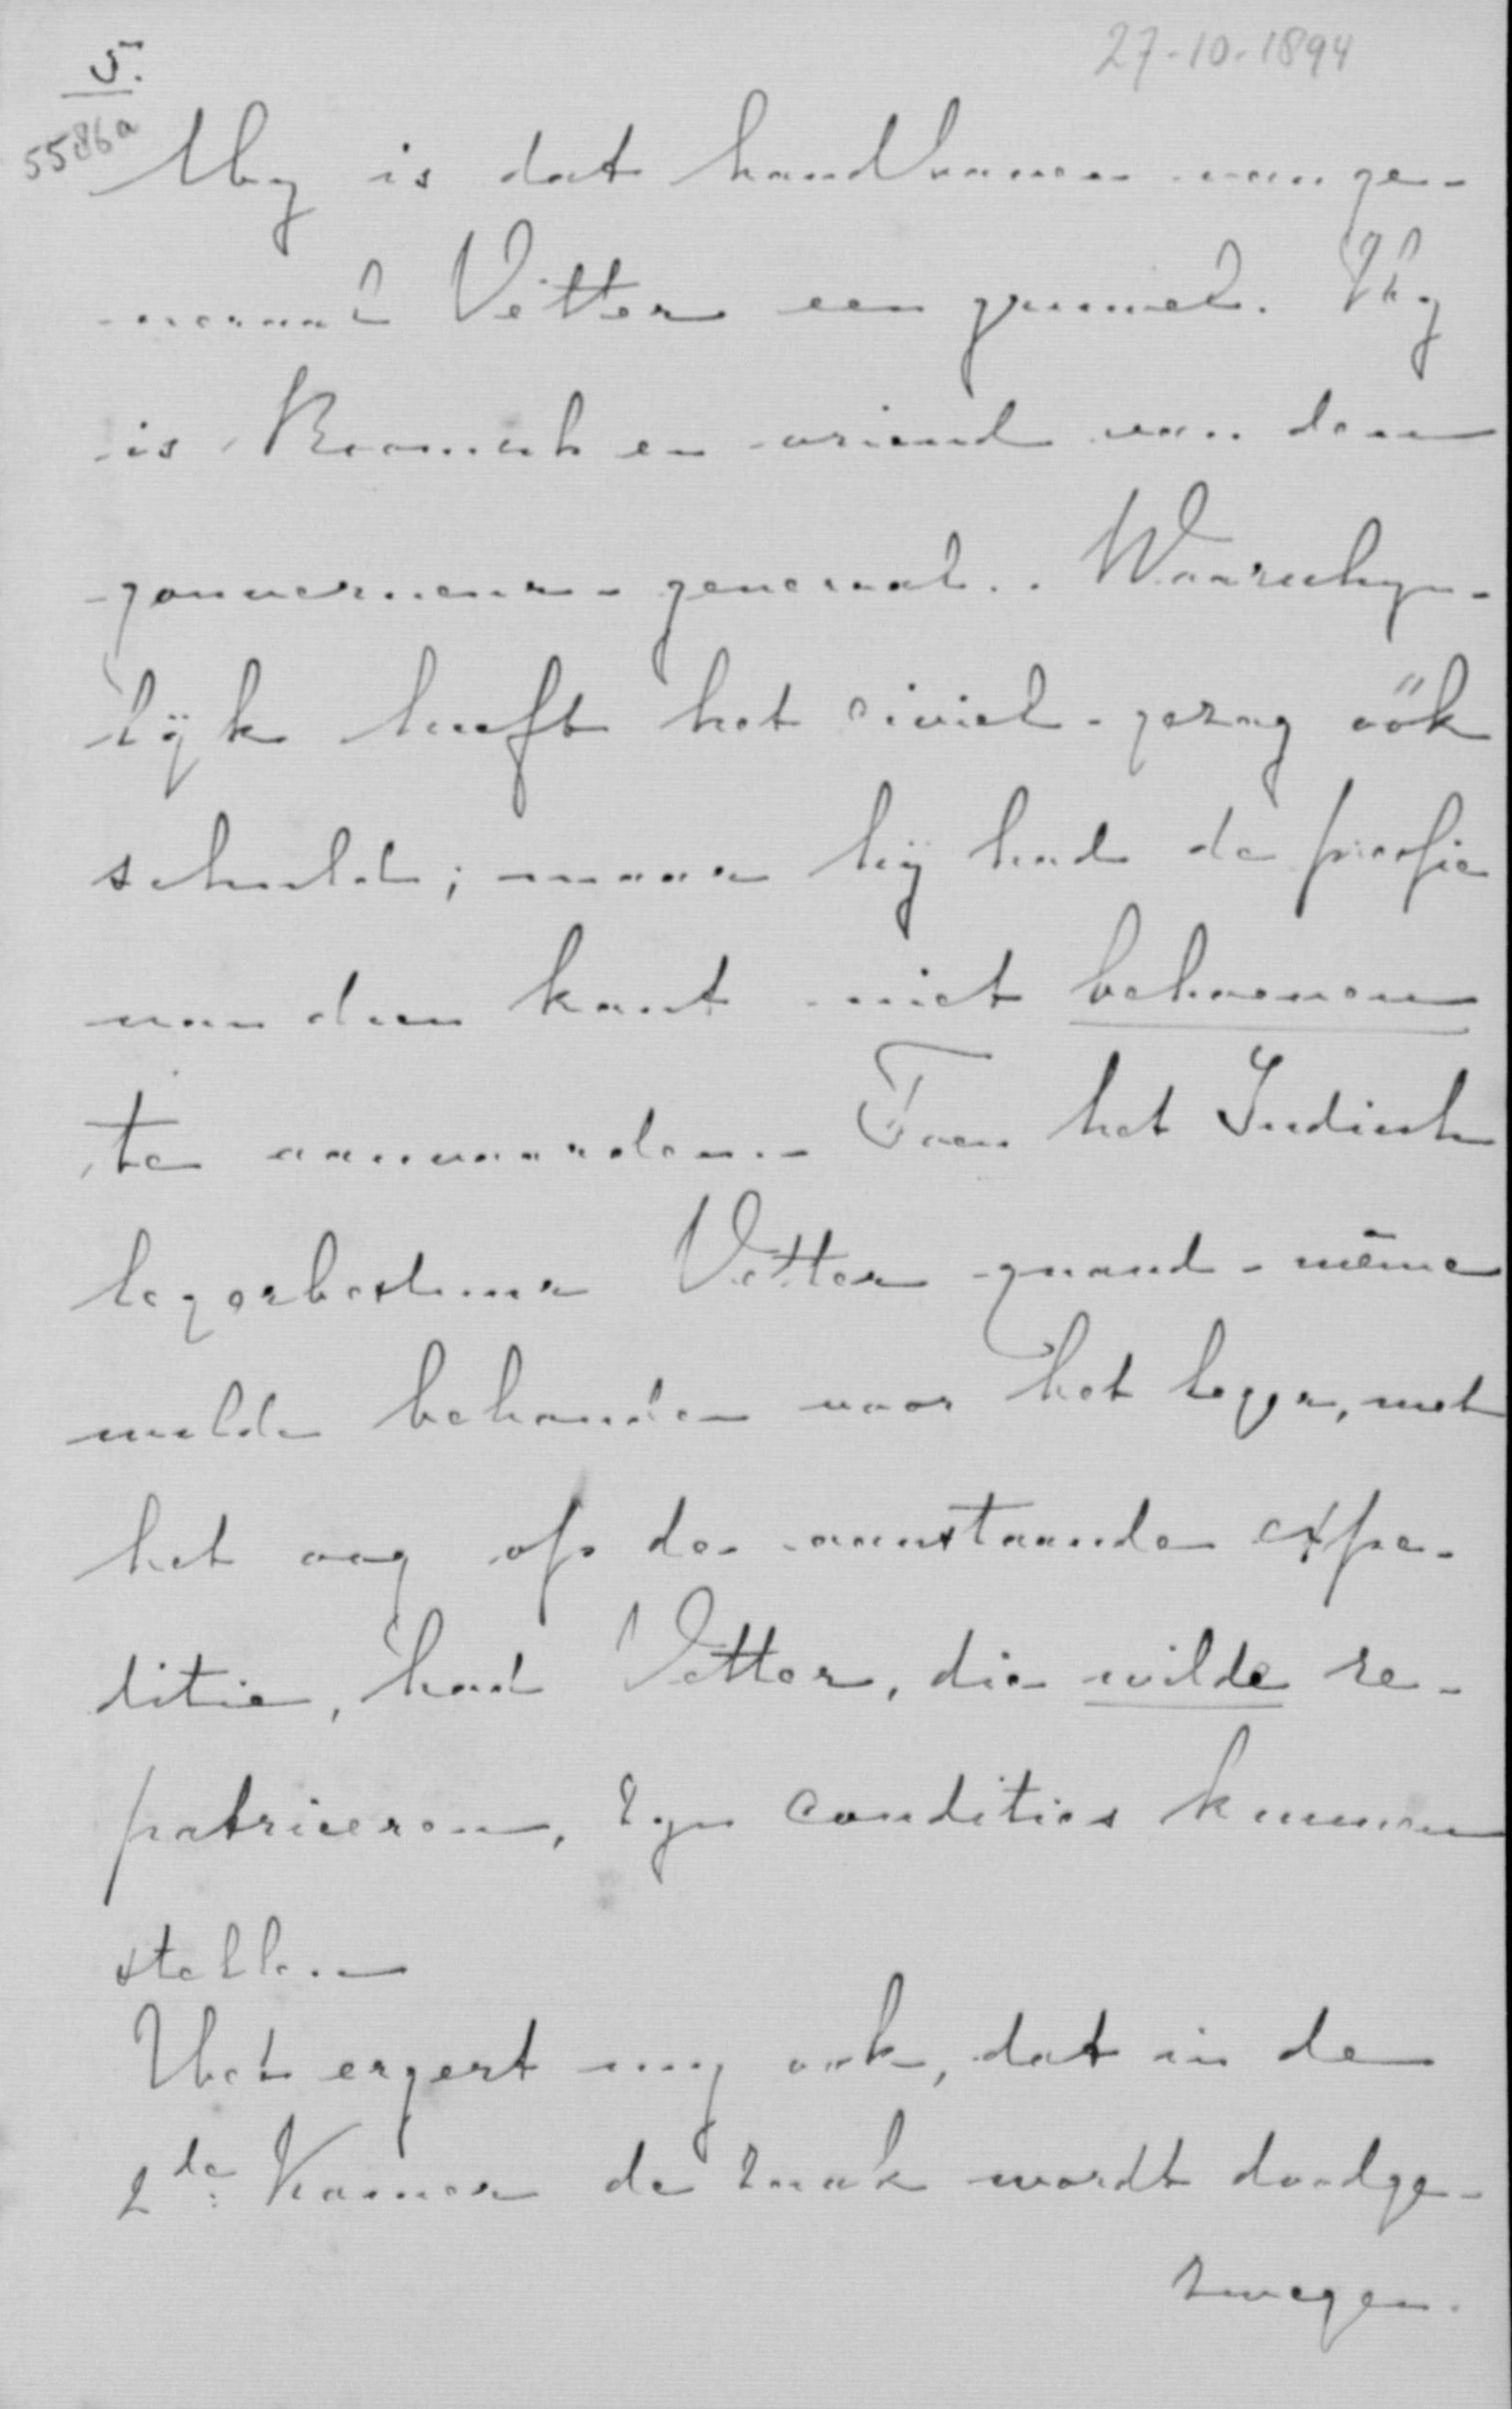 27-10-1894
5.
5586a
My is dat handhaven van ge-
neraal Vetter een gruwel. Hy
is Roomsch en vriend van den
gouverneur-generaal. Waarschyn-
lijk heeft het civiel-gezag óók
schuld; maar hij had de positie
van dien kant niet behoeven
te aanvaarden. Toen het Indisch
legerbestuur Vetter quand-même
wilde behouden voor het leger, met
het oog op de aanstaande expe-
ditie, had Vetter, die wilde re-
patrieeren, zyn condities kunnen
stellen.
Het ergert my ook, dat in de
2de Kamer de zaak wordt doodge-
zwegen.